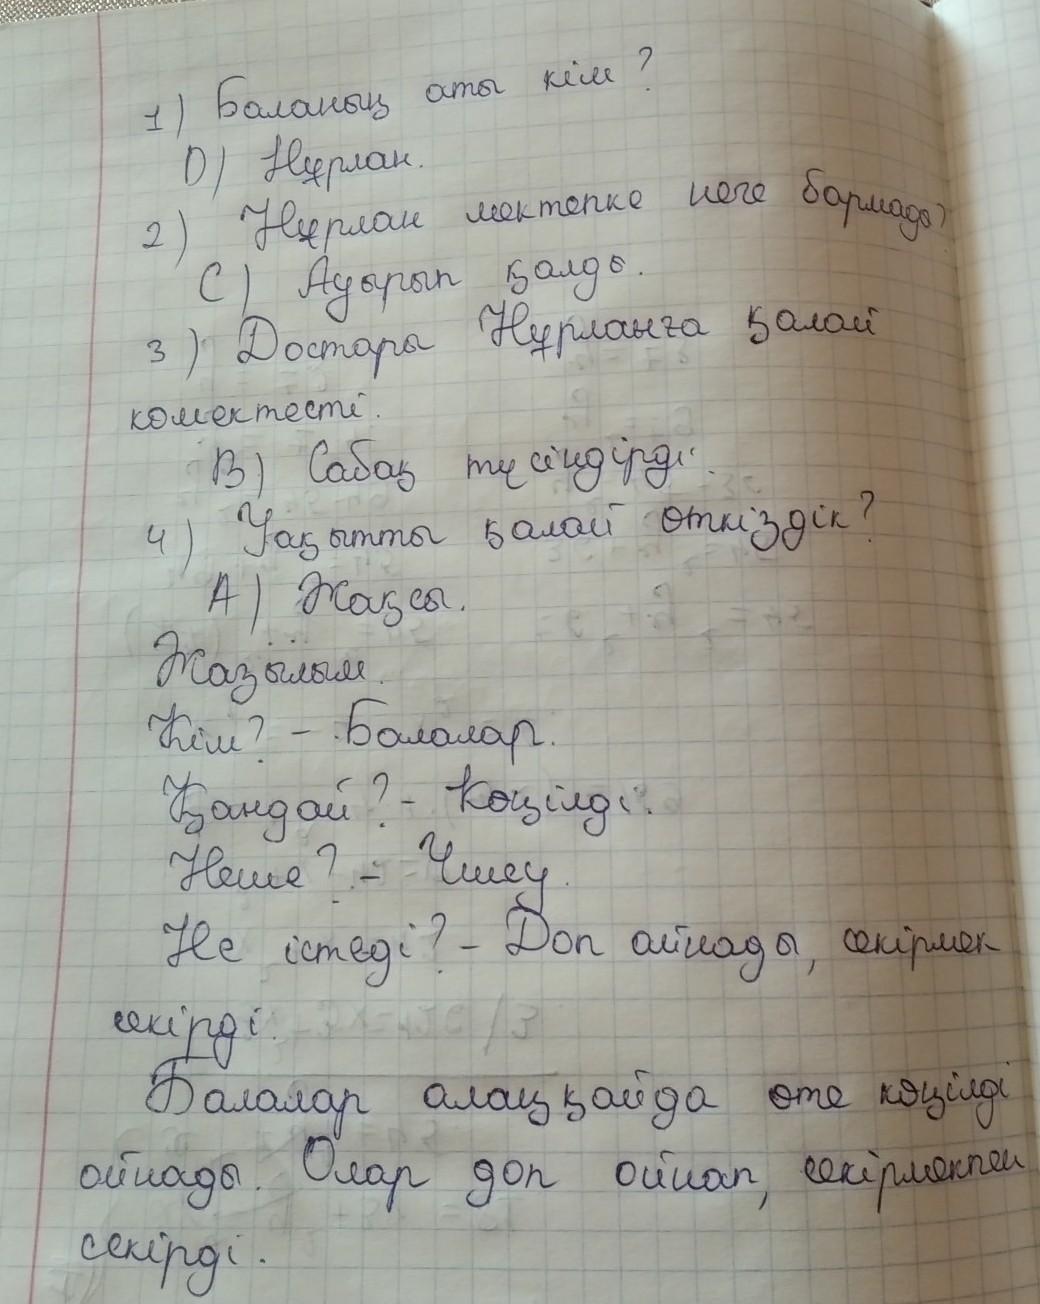 1) Баланың аты кім?
D) Нұрлан.
2) Нұрлан мектепке неге бармады?
C) Ауырып қалды.
3) Достары Нұрланға қалай
көмектесті.
B) Сабақ түсіндірді.
4) Уақытты қалай өткіздік?
A) Жақсы.
Жазылым.
Кім? - Балалар.
Қандай? - Көңілді.
Неше? - Үшеу.
Не істеді? - Доп ойнады, секірмек
секірді.
Балалар алаңқайда өте көңілді
ойнады. Олар доп ойнап, секірмекпен
секірді.